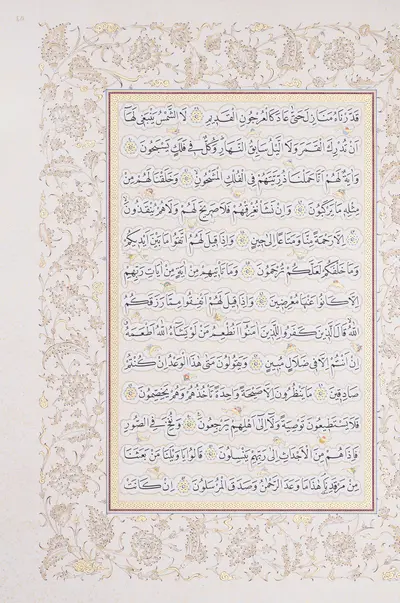 قَدَّرْنَاهُ مَنَازِلَ حَتَّىٰ عَادَ كَالْعُرْجُونِ الْقَدِيمِ لَا الشَّمْسُ يَنْبَغِي لَهَا
أَنْ تُدْرِكَ الْقَمَرَ وَلَا اللَّيْلُ سَابِقُ النَّهَارِ وَكُلٌّ فِي فَلَكٍ يَسْبَحُونَ
وَآيَةٌ لَهُمْ أَنَّا حَمَلْنَا ذُرِّيَّتَهُمْ فِي الْفُلْكِ الْمَشْحُونِ وَخَلَقْنَا لَهُمْ مِنْ
مِثْلِهِ مَا يَرْكَبُونَ وَإِنْ نَشَأْ نُغْرِقْهُمْ فَلَا صَرِيخَ لَهُمْ وَلَا هُمْ يُنْقَذُونَ
إِلَّا رَحْمَةً مِنَّا وَمَتَاعًا إِلَىٰ حِينٍ وَإِذَا قِيلَ لَهُمُ اتَّقُوا مَا بَيْنَ أَيْدِيكُمْ
وَمَا خَلْفَكُمْ لَعَلَّكُمْ تُرْحَمُونَ وَمَا تَأْتِيهِمْ مِنْ آيَةٍ مِنْ آيَاتِ رَبِّهِمْ
إِلَّا كَانُوا عَنْهَا مُعْرِضِينَ وَإِذَا قِيلَ لَهُمْ أَنْفِقُوا مِمَّا رَزَقَكُمُ
اللَّهُ قَالَ الَّذِينَ كَفَرُوا لِلَّذِينَ آمَنُوا أَنُطْعِمُ مَنْ لَوْ يَشَاءُ اللَّهُ أَطْعَمَهُ
إِنْ أَنْتُمْ إِلَّا فِي ضَلَالٍ مُبِينٍ وَيَقُولُونَ مَتَىٰ هَٰذَا الْوَعْدُ إِنْ كُنْتُمْ
صَادِقِينَ مَا يَنْظُرُونَ إِلَّا صَيْحَةً وَاحِدَةً تَأْخُذُهُمْ وَهُمْ يَخِصِّمُونَ
فَلَا يَسْتَطِيعُونَ تَوْصِيَةً وَلَا إِلَىٰ أَهْلِهِمْ يَرْجِعُونَ وَنُفِخَ فِي الصُّورِ
فَإِذَا هُمْ مِنَ الْأَجْدَاثِ إِلَىٰ رَبِّهِمْ يَنْسِلُونَ قَالُوا يَا وَيْلَنَا مَنْ بَعَثَنَا
مِنْ مَرْقَدِنَا هَٰذَا مَا وَعَدَ الرَّحْمَٰنُ وَصَدَقَ الْمُرْسَلُونَ إِنْ كَانَتْ